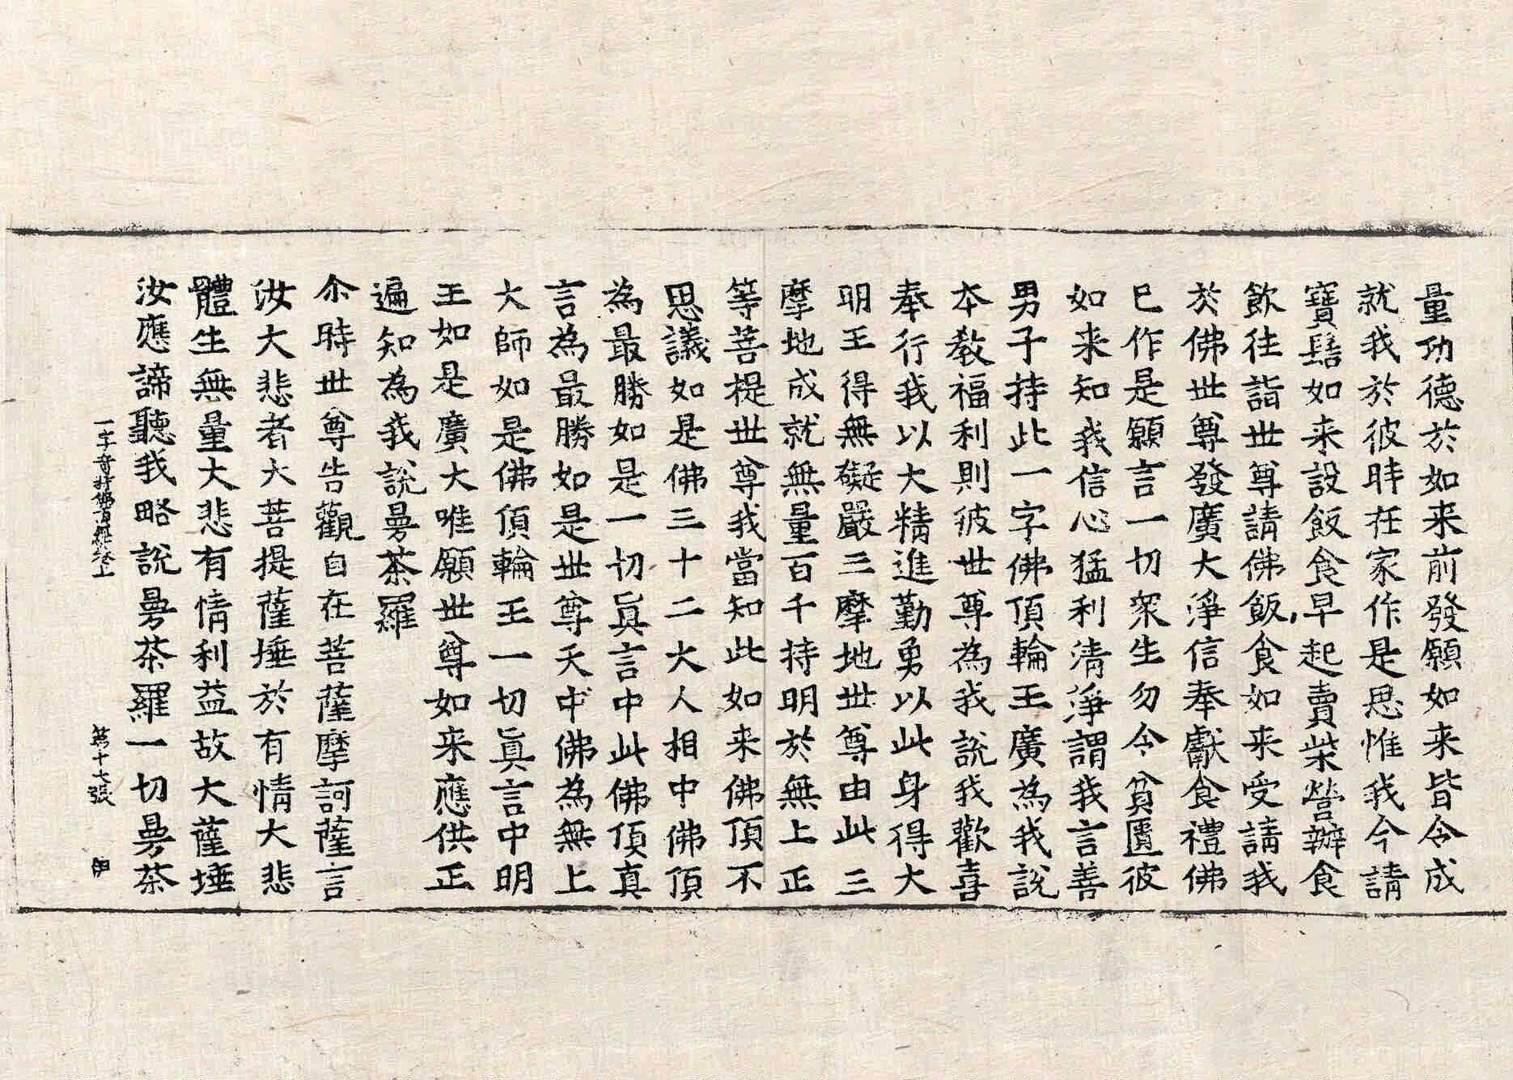 量功德於如来前發願如来皆令成
就我於彼時在家作是思惟我今請
寶髻如来設飯食早起賣柴營辦食
飲往詣世尊請佛飯食如来受請我
於佛世尊發廣大淨信奉獻食禮佛
已作是願言一切衆生勿令貧匱彼
如来知我信心猛利清淨謂我言善
男子持此一字佛頂輪王廣為我說
本教福利則彼世尊為我說我歡喜
奉行我以大精進勤勇以此身得大
明王得無礙嚴三摩地世尊由此三
摩地成就無量百千持明於無上正
等菩提世尊我當知此如来佛頂不
思議如是佛三十二大人相中佛頂
為最勝如是一切眞言中此佛頂真
言為最勝如是世尊天中佛為無上
大師如是佛頂輪王一切眞言中明
王如是廣大唯願世尊如来應供正
遍知為我說曼荼羅
尒時世尊告觀自在菩薩摩訶薩言
汝大悲者大菩提薩埵於有情大悲
體生無量大悲有情利益故大薩埵
汝應諦聽我略說曼荼羅一切曼荼
一字奇特佛頂經卷上 第十七張